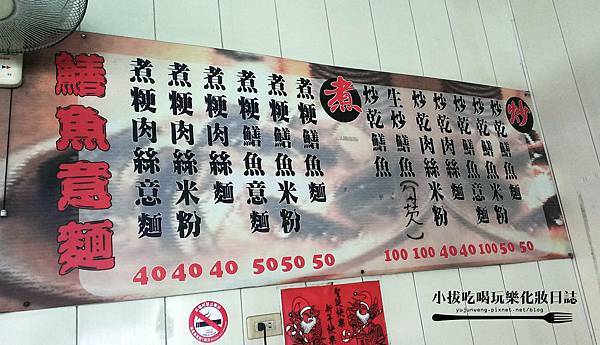 炒
炒乾鱔魚麵
炒乾鱔魚米粉
炒乾鱔魚意麵
炒乾肉絲麵
炒乾肉絲米粉
生炒鱔魚(勾芡)
炒乾鱔魚
100 100 40 40 100 50 50
煮
煮粳鱔魚麵
煮粳鱔魚米粉
煮粳鱔魚意麵
煮粳肉絲麵
煮粳肉絲米粉
煮粳肉絲意麵
40 40 40 50 50 50
鱔魚意麵
聖誕快樂
新年快樂
小拔吃喝玩樂化妝日誌
yujunweng.pixnet.net/blog